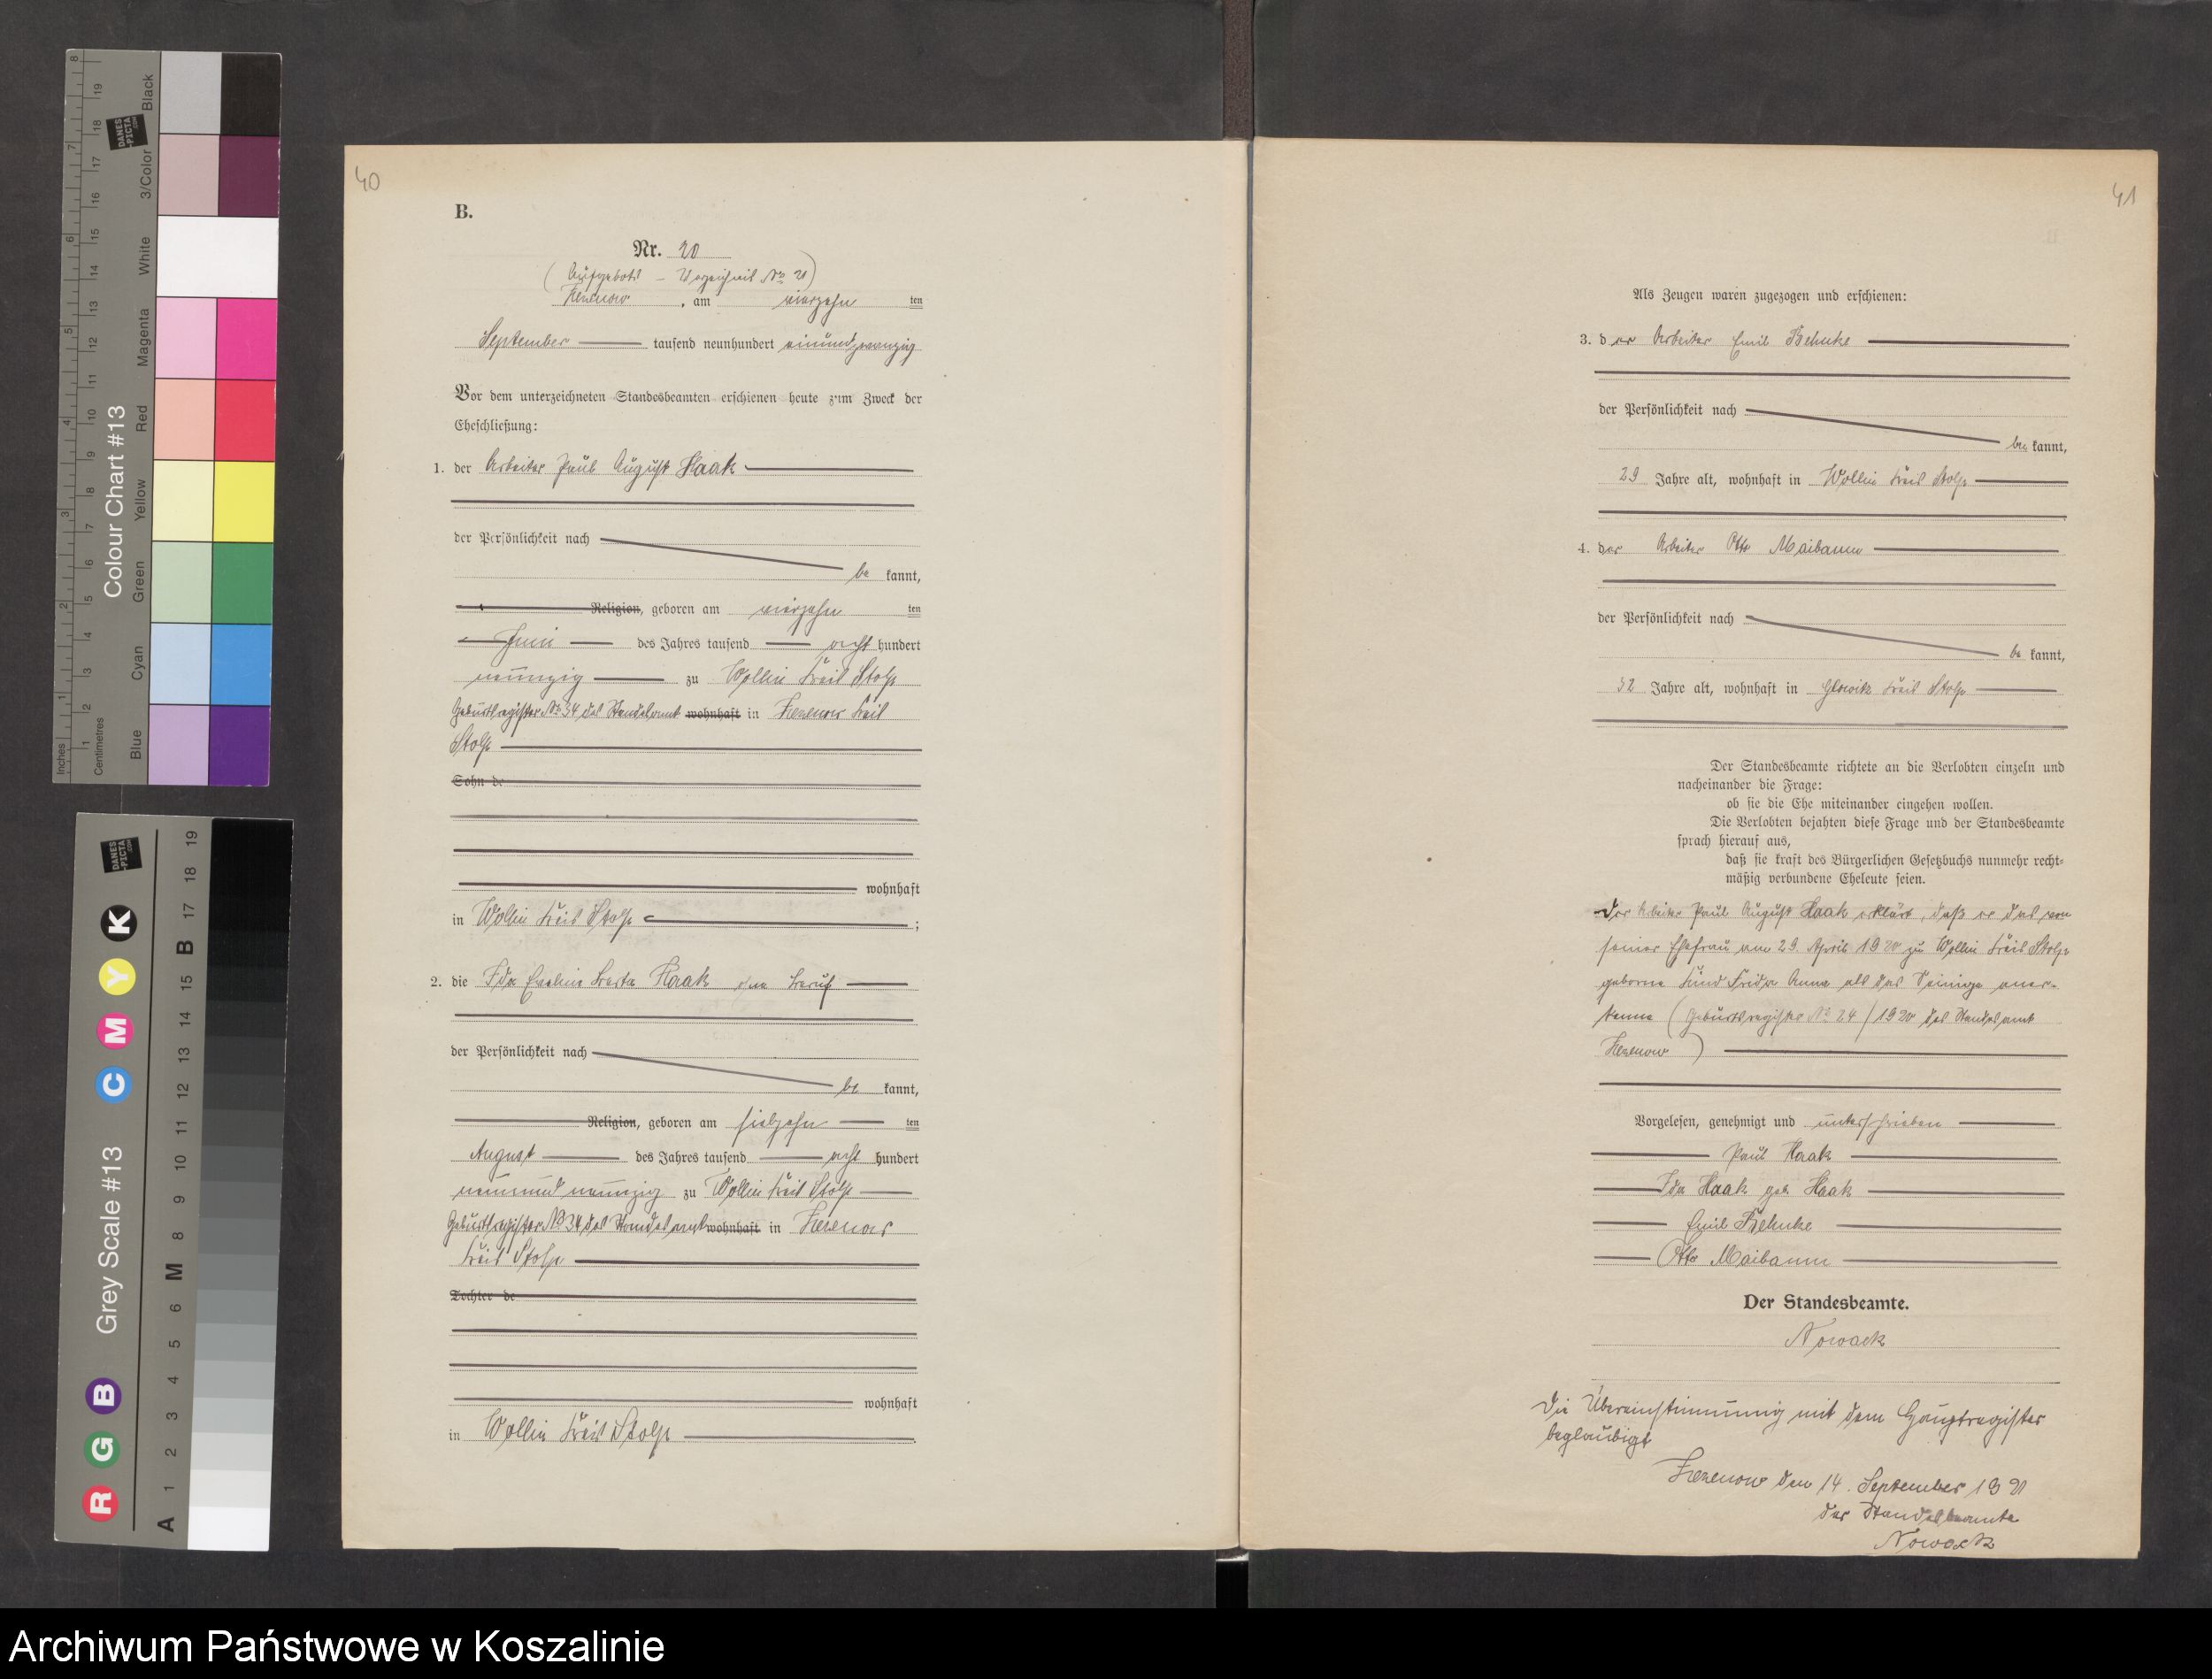 40
B.
Nr. 20
(Aufgebots-Verzeichnis No 21)
Zezenow, am vierzehnten
September tausend neunhundert einundzwanzig
Vor dem unterzeichneten Standesbeamten erschienen heute zum Zweck der
Eheschließung:
1. der Arbeiter Paul August Haak
der Persönlichkeit nach
be kannt,
Religion, geboren am vierzehn ten
Juni des Jahres tausend acht hundert
neunzig zu Wollin Kreis Stolp
Geburtsregister No 34 des Standesamt wohnhaft in Zezenow Kreis
Stolp
Sohn de
wohnhaft
in Wollin Kreis Stolp ;
2. die Ida Berta Haak ohne Beruf
der Persönlichkeit nach
be kannt,
Religion, geboren am siebzehn ten
August des Jahres tausend acht hundert
neunundneunzig zu Wollin Kreis Stolp
Geburtsregister No 34 des Standesamt wohnhaft in Zezenow
Kreis Stolp
Tochter de
wohnhaft
in Wollin Kreis Stolp
41
Als Zeugen waren zugezogen und erschienen:
3. der Arbeiter Emil Behnke
der Persönlichkeit nach
be kannt,
29 Jahre alt, wohnhaft in Wollin Kreis Stolp
4. der Arbeiter Otto Maibaum
der Persönlichkeit nach
be kannt,
32 Jahre alt, wohnhaft in Kreis Stolp
Der Standesbeamte richtete an die Verlobten einzeln und
nacheinander die Frage:
ob sie die Ehe miteinander eingehen wollen.
Die Verlobten bejahten diese Frage und der Standesbeamte
sprach hierauf aus,
daß sie kraft des Bürgerlichen Gesetzbuchs nunmehr recht-
mäßig verbundene Eheleute seien.
Der Arbeiter Paul August Haak erklärt, daß er das von
seiner Ehefrau am 29. April 1920 zu Wollin Kreis Stolp
geborene Kind Frida Anna als das Seinige aner-
kenne (Geburtsregister No 24/1920 des Standesamt
Zezenow)
Vorgelesen, genehmigt und unterschrieben
Paul Haak
Ida Haak geb. Haak
Emil Behnke
Otto Maibaum
Der Standesbeamte.
Nowack
Die Übereinstimmung mit dem Hauptregister
beglaubigt
Zezenow den 14. September 1921
Der Standesbeamte
Nowack
Inches
Centimetres
Colour Chart #13
Blue
Cyan
Green
Yellow
Red
Magenta
White
3/Color
Black
DANES
-PICTA
.COM
Grey Scale #13
R G B C M Y K
A 1 2 3 4 5 6 M 8 9 10 11 12 13 14 15 B 17 18 19
DANES
-PICTA
.COM
Archiwum Państwowe w Koszalinie